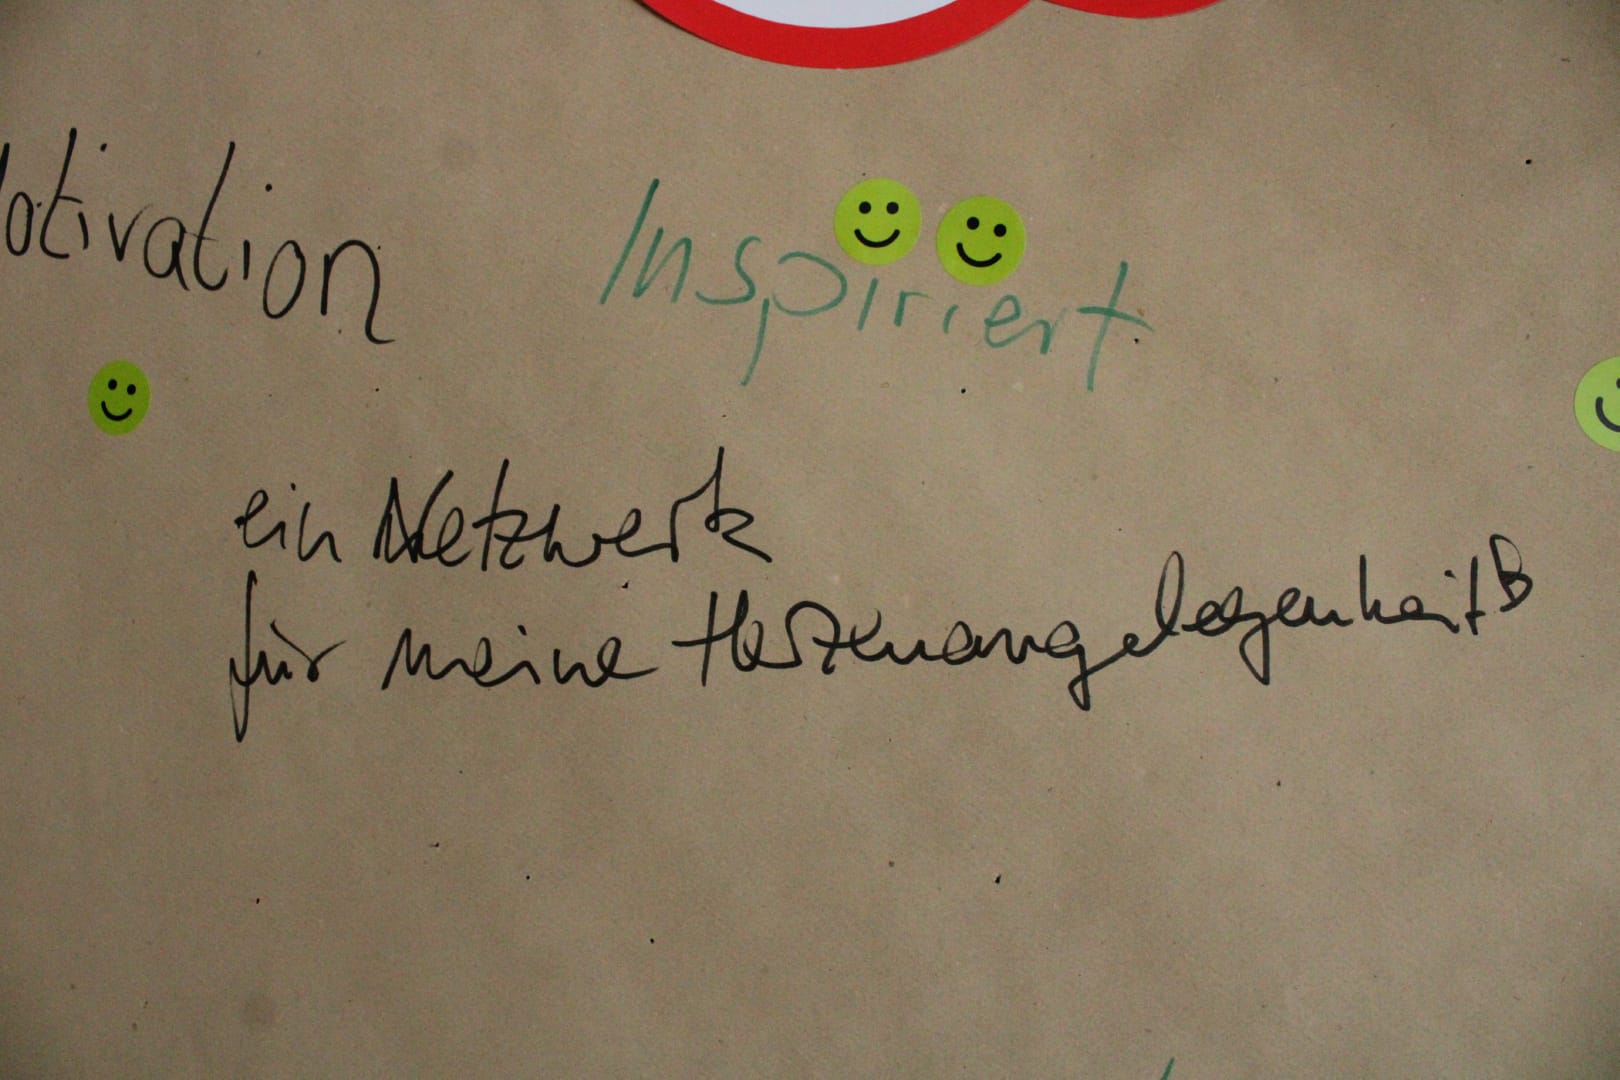 Motivation
Inspiriert
ein Netzwerk
für meine Herzenangelegenheit